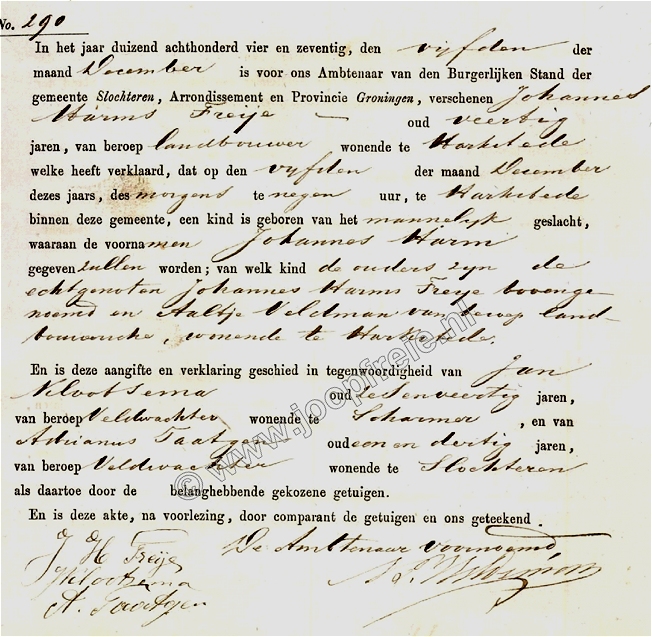 No. 290
In het jaar duizend achthonderd vier en zeventig, den vijfden der
maand December is voor ons Ambtenaar van den Burgerlijken Stand der
gemeente Slochteren, Arrondissement en Provincie Groningen, verschenen Johannes
Harms Freije — oud veertig
jaren, van beroep landbouwer wonende te Harkstede
welke heeft verklaard, dat op den vijfden der maand December
dezes jaars, des morgens te negen uur, te Harkstede
binnen deze gemeente, een kind is geboren van het mannelijk geslacht,
waaraan de voornamen Johannes Harm
gegeven zullen worden; van welk kind de ouders zijn de
echtgenoten Johannes Harms Freije bovenge-
noemd en Aaltje Veldman van beroep land-
bouwersche, wonende te Harkstede.
En is deze aangifte en verklaring geschied in tegenwoordigheid van Jan
Klootsema oud zesenveertig jaren,
van beroep Veldwachter wonende te Scharmer, en van
Adrianus Taatgen oud een en dertig jaren,
van beroep Veldwachter wonende te Slochteren
als daartoe door de belanghebbende gekozene getuigen.
En is deze akte, na voorlezing, door comparant de getuigen en ons geteekend.
De Ambtenaar voornoemd,
J H Freije
J Klootsema
A. Taatgen
© www.joopfreie.nl